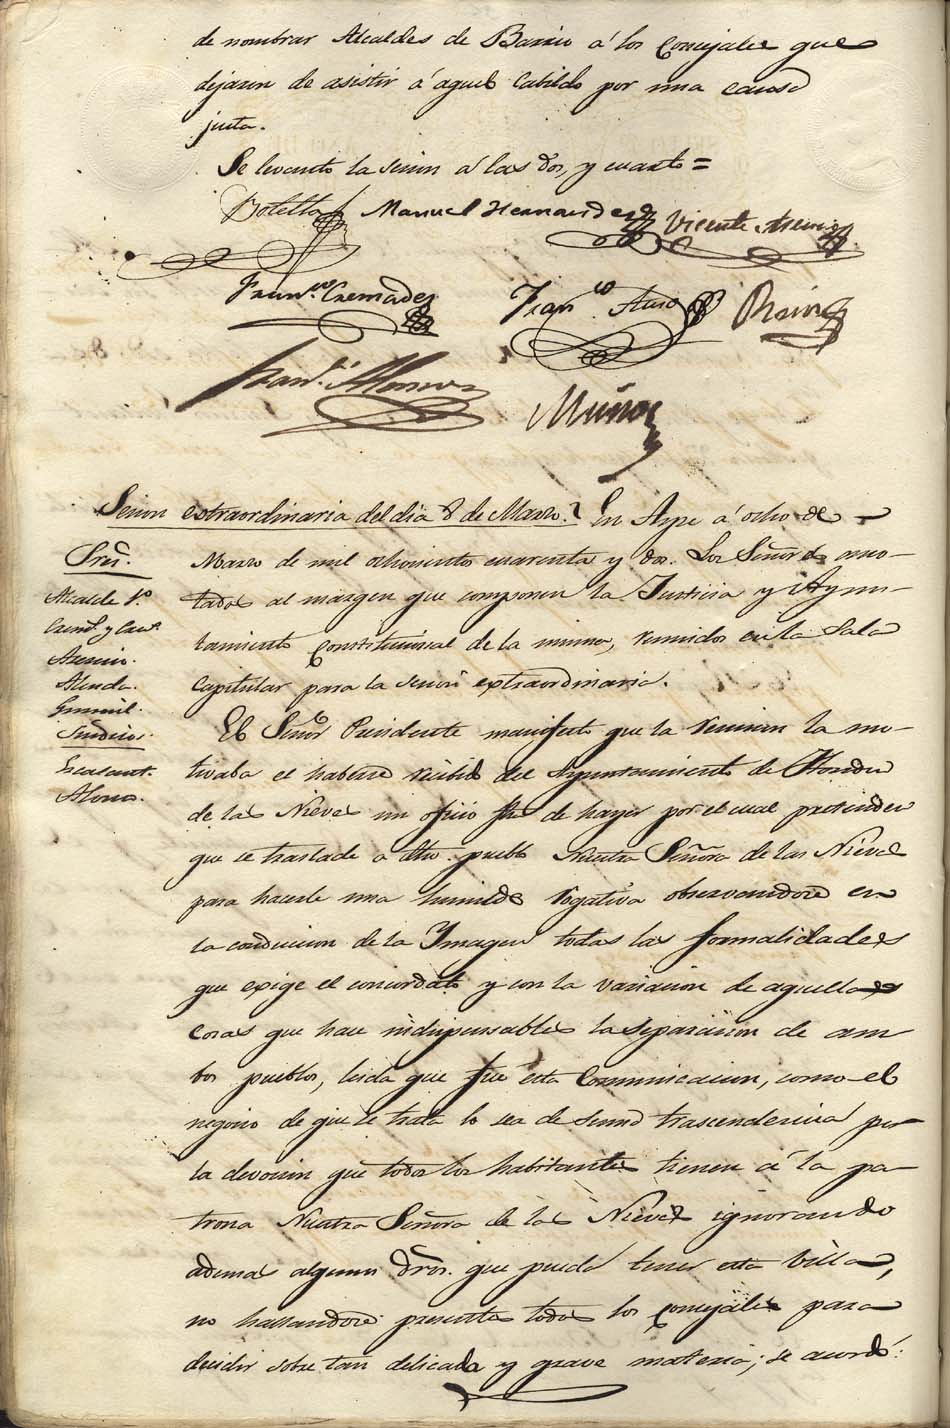 de nombrar Alcaldes de Barrio á los Concejales que
dejaron de asistir á aquel Cabildo por una causa
justa.
Se levanto la sesion á las dos, y cuarto =
Botella Manuel Hernandez Vicente Asencio
Fran.co Cremades Fran.co Auso
Fran.co Alonso Muñoz
Sesion extraordinaria del dia 8 de Marzo. En Aspe á ocho de
Marzo de mil ochocientos cuarenta y dos. Los Señores ano-
tados al margen que componen la Justicia y Ayun-
tamiento Constitucional de la misma, reunidos en la Sala
Capitular para la sesion extraordinaria.
Sres.
Alcalde 1.º
Asencio.
Almda.
Síndicos.
Alonso.
El Señor Presidente manifesto que la reunion la mo-
tivaba el haberse recibido del Ayuntamiento de Hondon
de las Nieves un oficio fha de hayer por el cual pretenden
que se traslade a dho. pueblo Nuestra Señora de las Nieves
para hacerle una humilde rogativa observandose en
la conduccion de la Ymagen todas las formalidades
que exige el concordato y con la variacion de aquellas
cosas que hace indispensables la separacion de am
bos pueblos, leida que fue esta comunicacion, como el
negocio de que se trata lo sea de suma trascendencia por
la devocion que todos los habitantes tienen á la pa-
trona Nuestra Señora de las Nieves ignorando
ademas algunos dros. que pueda tener esta Villa,
no hallandose presentes todos los concejales para
decidir sobre tan delicada y grave materia; se acordó: